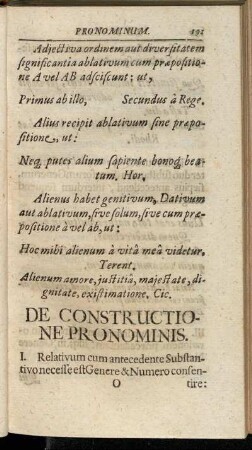 PRONOMINUM. 191
Adjectiva ordinem aut diversitatem
significantia ablativum cum præpositio-
ne A vel AB adsciscunt; ut,
Primus ab illo, Secundus à Rege.
Alius recipit ablativum sine præpo-
sitione, ut:
Neq; putes alium sapiente bonoq; be-
tum. Hor.
Alienus habet genitivum, Dativum
aut ablativum, sive solum, sive cum præ-
positione à vel ab, ut:
Hoc mihi alienum à vitâ meâ videtur.
Terent.
Alienum amore, justitiâ, majestate, di-
gnitate, existimatione. Cic.
DE CONSTRUCTIO-
NE PRONOMINIS.
I. Relativum cum antecedente Substan-
tivo necesse est Genere & Numero consen-
O tire: